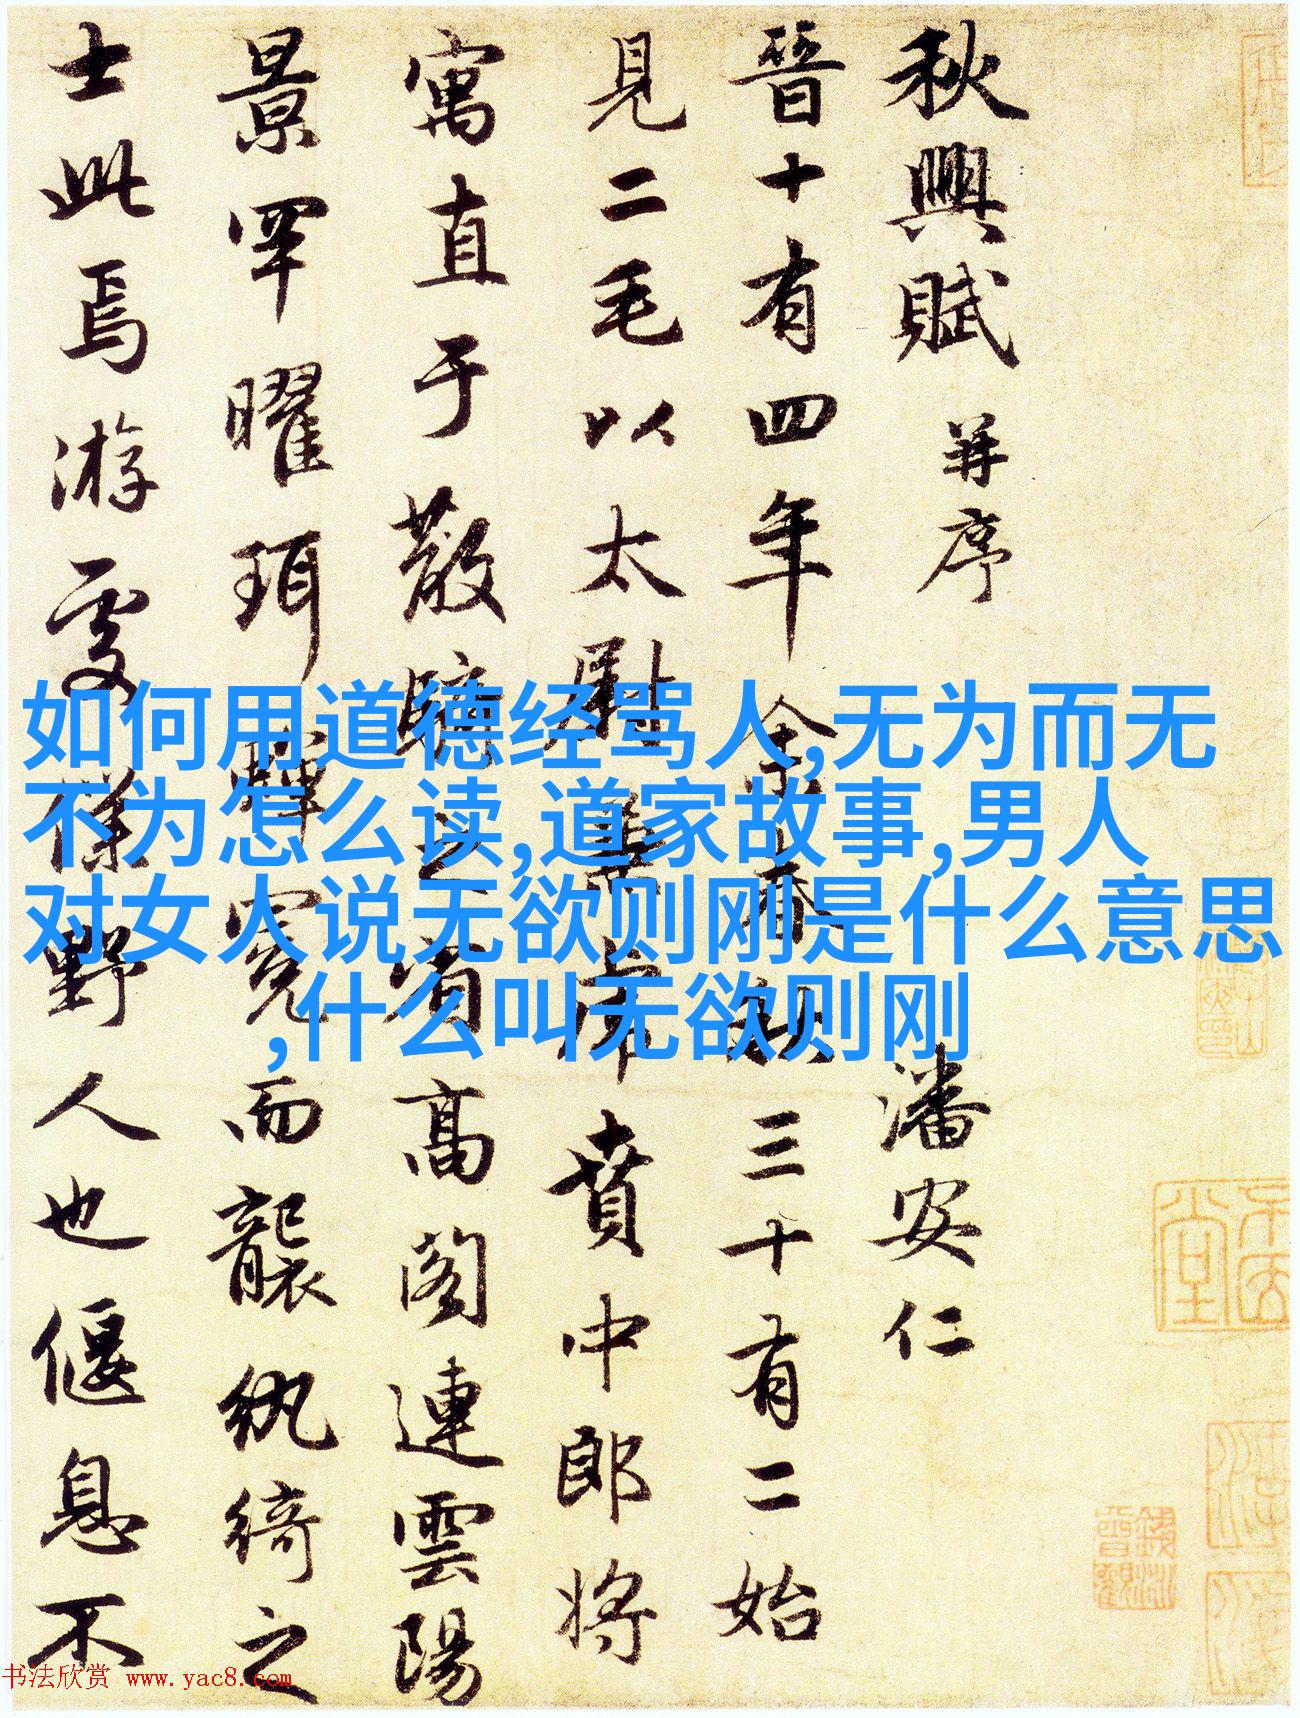 秋興賦 并序 潘安仁
晉十有四年余春秋三十有二始
見二毛以太尉掾兼虎賁中郎将
寓直于散騎之省高閣連雲陽
景罕曜珥蟬冕而襲紈綺之
士此焉游處僕野人也偃息不
如何用道德经骂人,无为而无
不为怎么读,道家故事,男人
对女人说无欲则刚是什么意思
,什么叫无欲则刚
书法欣赏 www.yac8.com